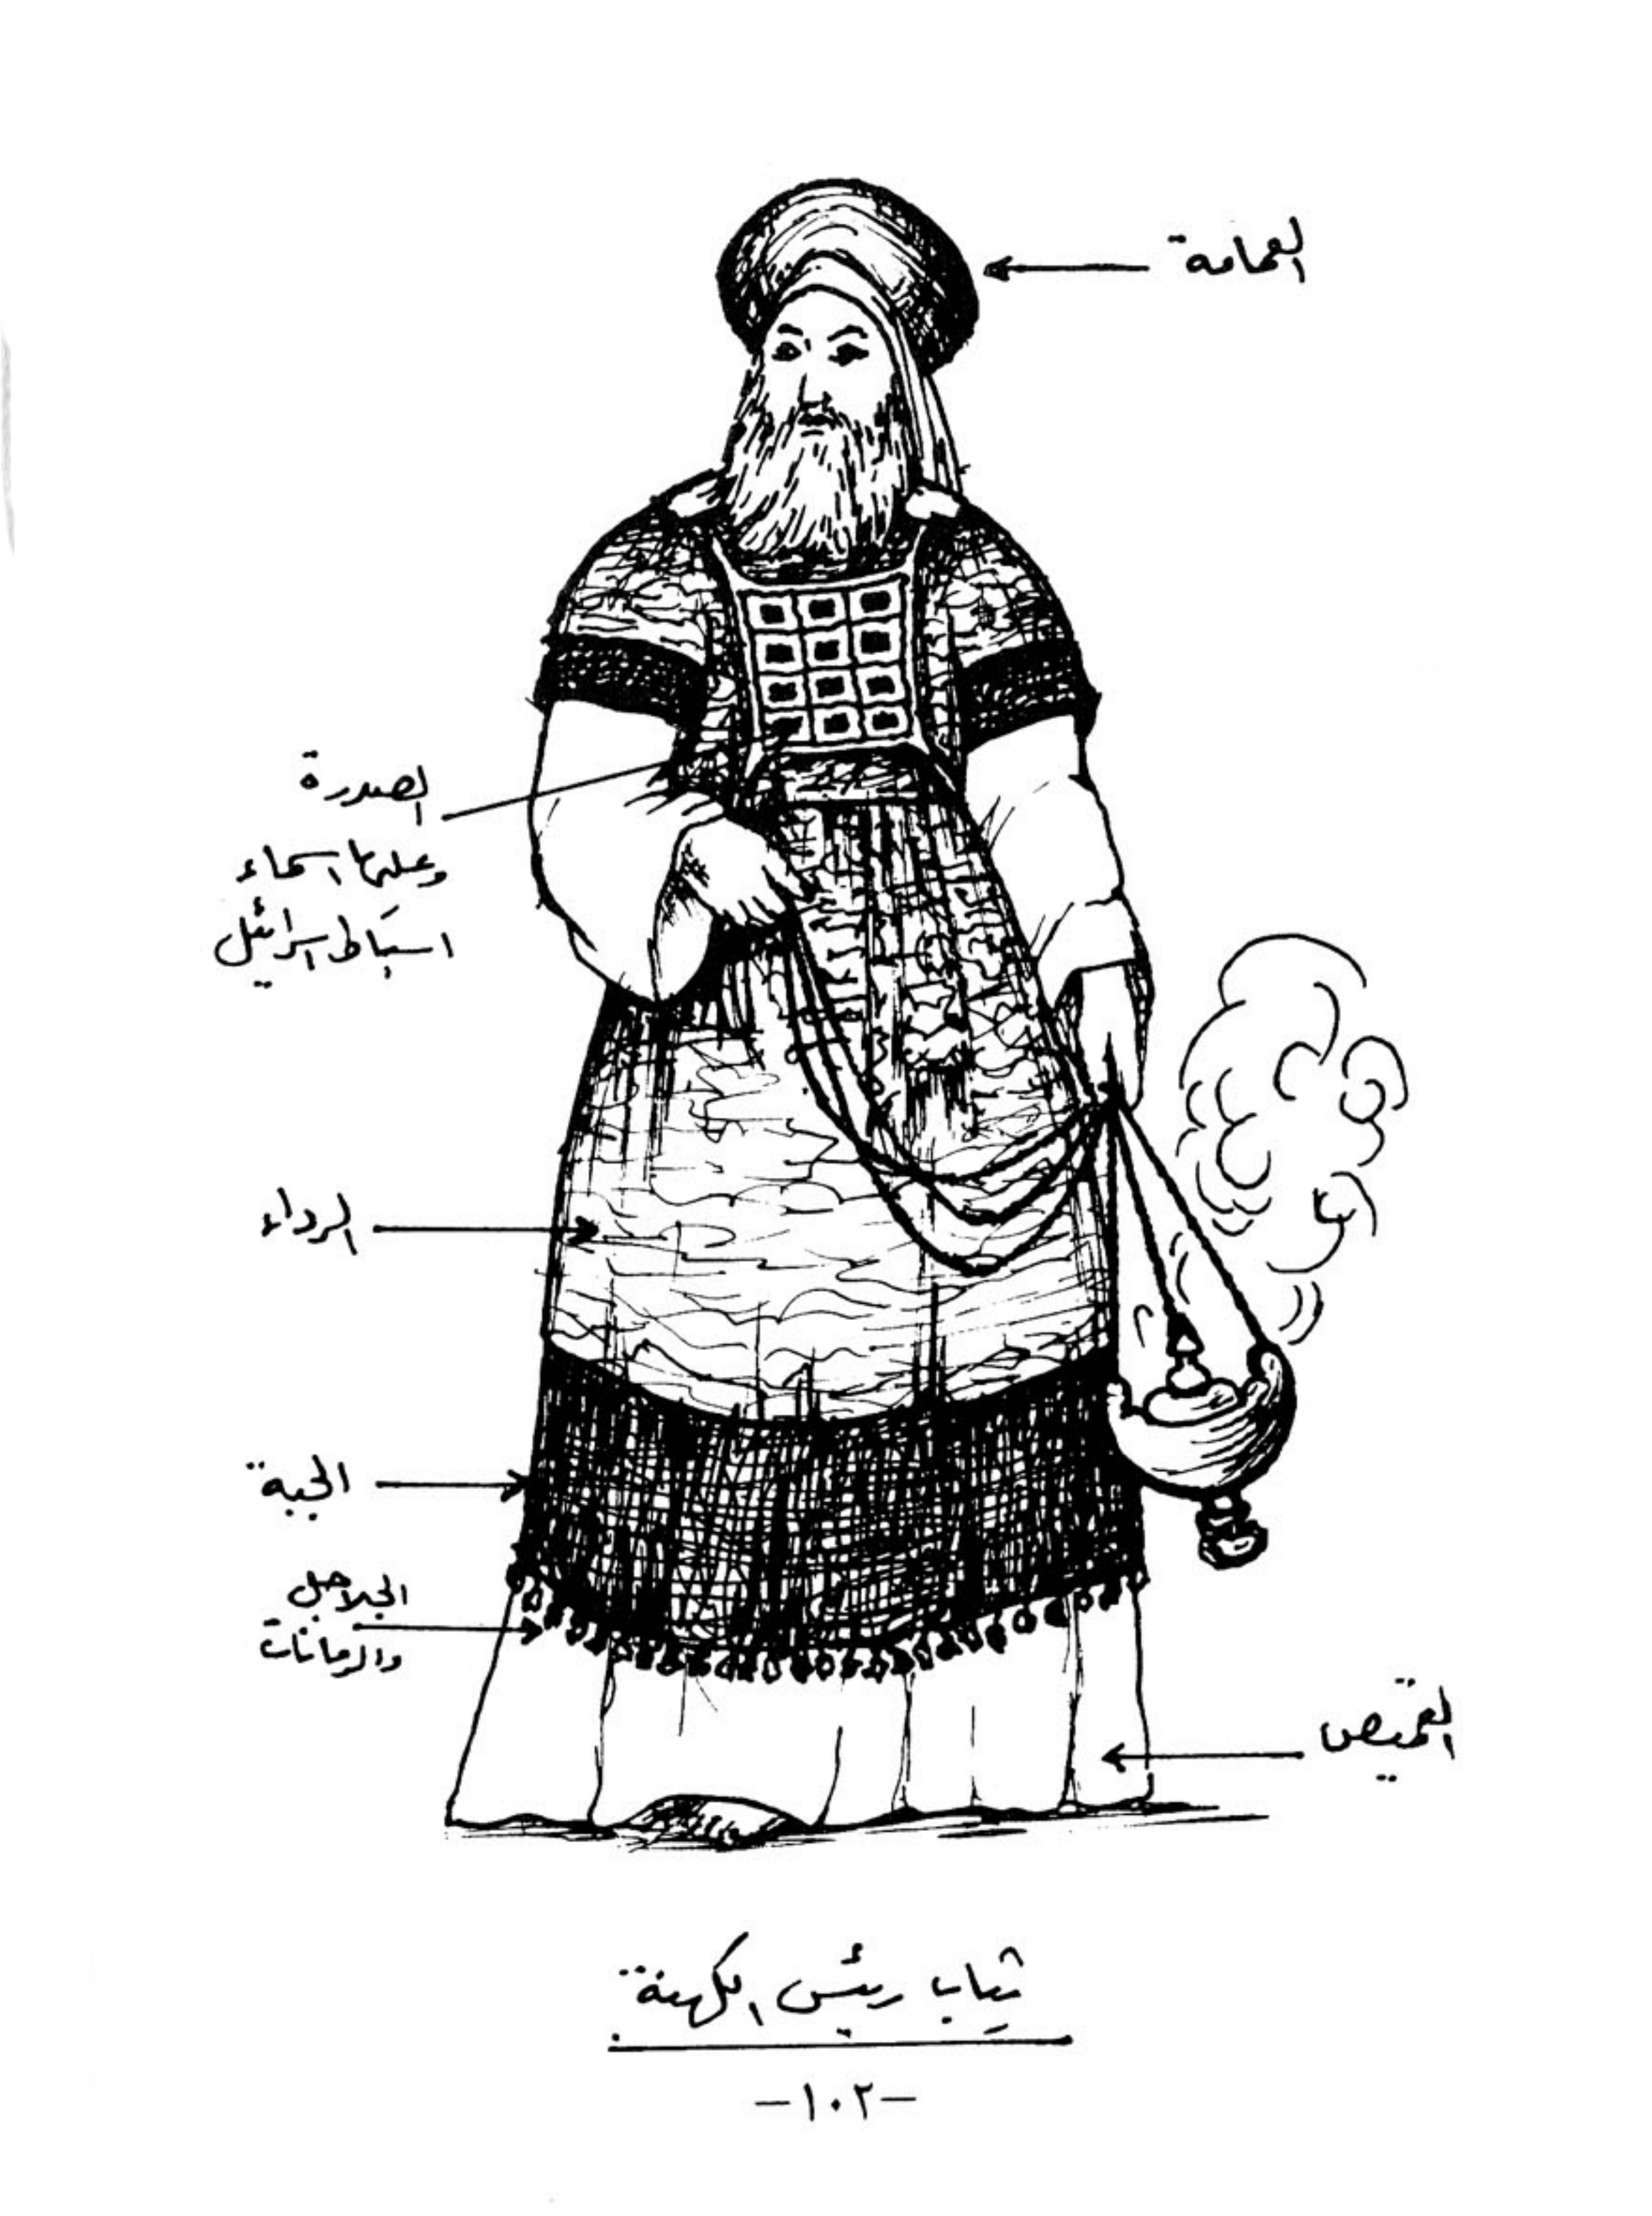 العمامة
الصدرة
وعليها اسماء
اسباط اسرائيل
الرداء
الجبة
الجلاجل
والرمانات
القميص
ثياب رئيس الكهنة
-١٠٢-